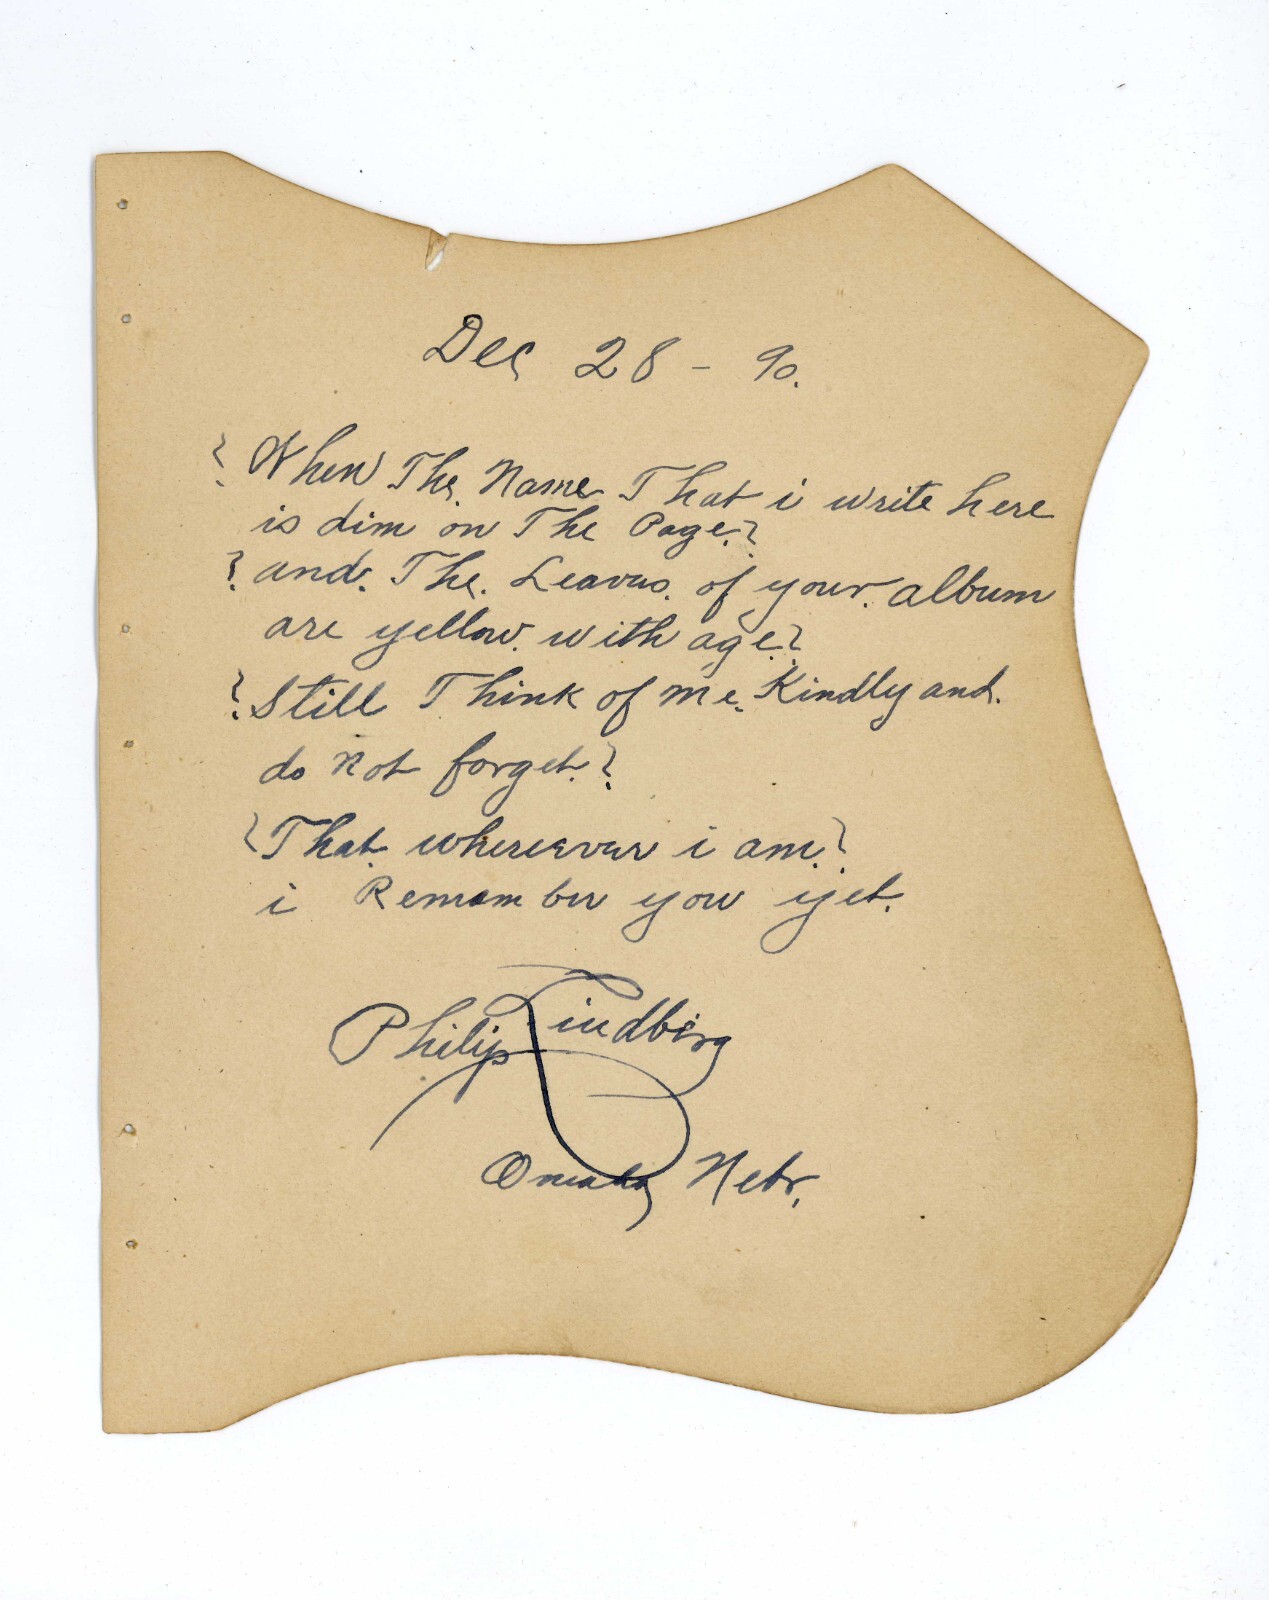 Dec 28 - 90.
When The Name That i write here
is dim on The Page?
? and. The. Leaves. of your. album
are yellow. with age?
? Still Think of me. Kindly and.
do Not forget.?
That wherever i am?
i Remember you yet.
Philip Lindberg
Omaha Nebr.